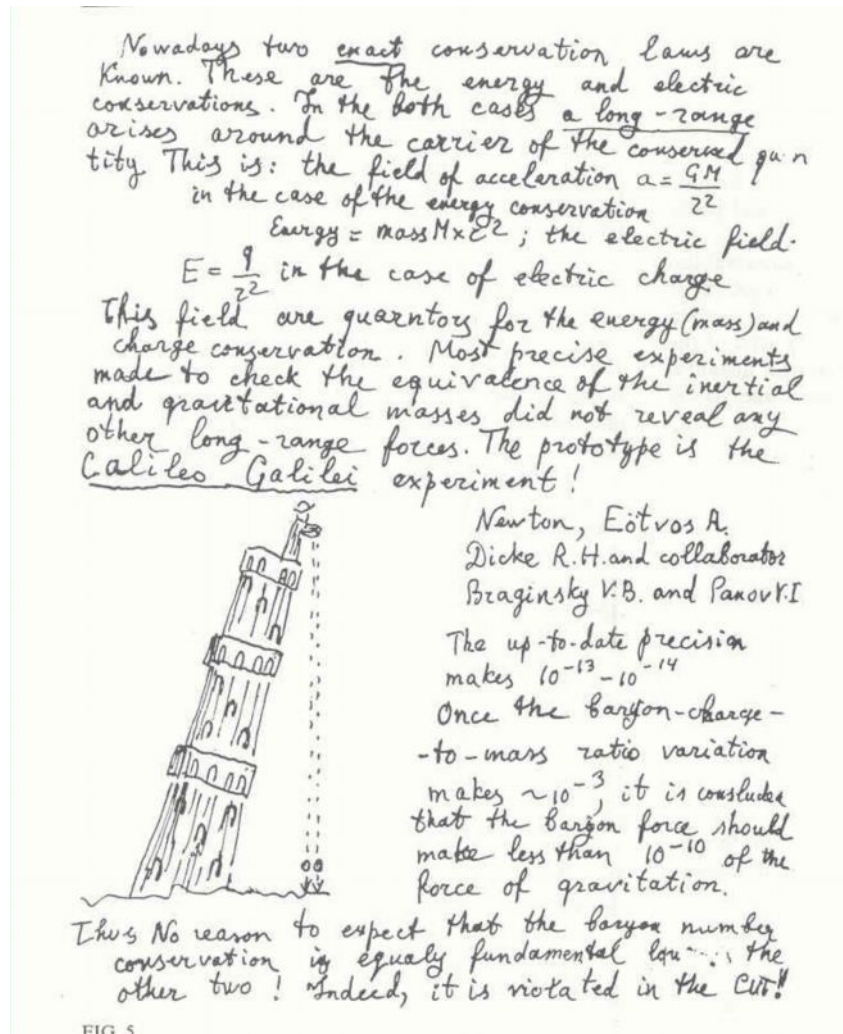 Nowadays two exact conservation laws are
known. These are the energy and electric
conservations. In the both cases a long-range
arises around the carrier of the conserved quan
tity. This is: the field of acceleration a = GM/r²
in the case of the energy conservation
Energy = mass M×c²; the electric field.
E = q/r² in the case of electric charge
This field are quarntors for the energy (mass) and
charge conservation. Most precise experiments
made to check the equivalence of the inertial
and gravitational masses did not reveal any
other long-range forces. The prototype is the
Galileo Galilei experiment!
Newton, Eötvos A.
Dicke R.H. and collaborator
Braginsky V.B. and Panov V.I
The up-to-date precision
makes 10⁻¹³ – 10⁻¹⁴
Once the baryon-charge-
-to-mass ratio variation
makes ~10⁻³, it is consluded
that the baryon force should
make less than 10⁻¹⁰ of the
force of gravitation.
Thus No reason to expect that the baryon number
conservation is equaly fundamental the
other two! Indeed, it is violated in the GUT!!
FIG. 5